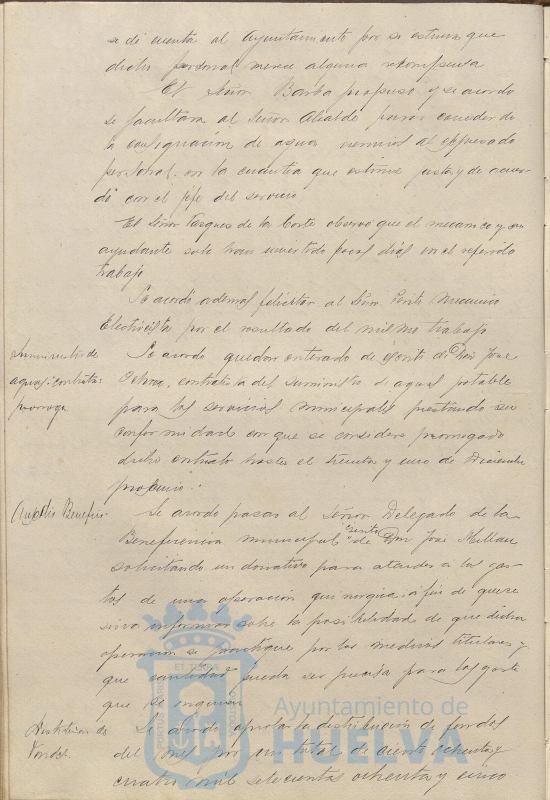 se dé cuenta al Ayuntamiento por si estima que
dicho personal merece alguna recompensa
El Señor Barba propuso y se acordo
se facultara al Señor Alcalde para conceder
la consignación de agua al expresado
personal en la cuantia que estime justa y de acuer-
do con el jefe del servicio
El Señor Vazquez de la Corte observo que el mecanico y su
ayudante solo han invertido pocos dias en el referido
trabajo
Se acordo ademas felicitar al Señor Mecanico
Electricista por el resultado del mismo trabajo
Suministro de
aguas: contrata:
prorroga
Se acordo quedar enterado de escrito de Don José
Ochoa, contratista del suministro de aguas potable
para los servicios municipales prestando su
conformidad con que se considere prorrogado
dicho contrato hasta el treinta y uno de Diciembre
proximo.
Auxilio Benefico.
Se acordo pasar al Señor Delegado de la
Beneficencia municipal escrito de Don José Millan
solicitando un donativo para atender a los gas-
tos de una operación quirurgica á fin de que se
sirva informar sobre la posibilidad de que dicha
operacion se practique por los medicos titulares y
que cantidad pueda ser precisa para los gastos
que se originen
Distribucion de
fondos.
Se acordo aprobar la distribución de fondos
del mes por un total de ciento ochenta y
cuatro mil setecientas ochenta y cinco
PORTUS MARIS
ET TERRAE
CUSTODIA
Ayuntamiento de
HUELVA